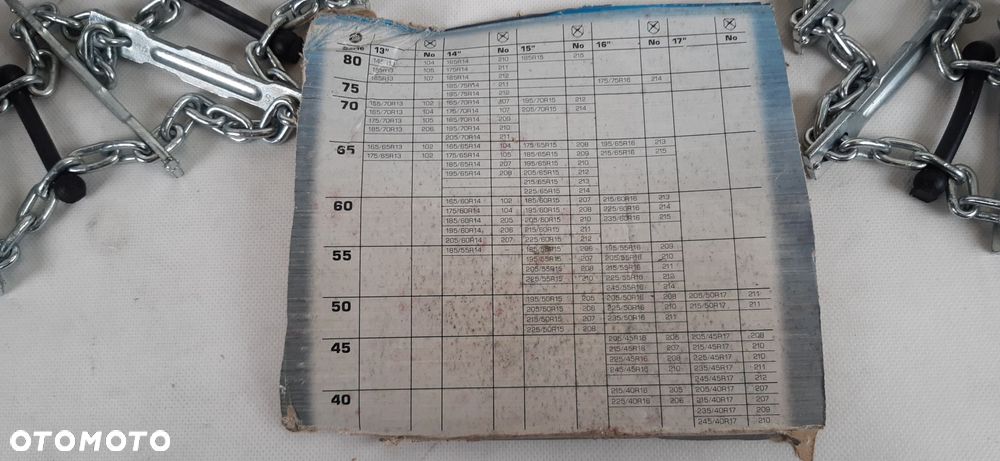 Serie 13" No 14" No 15" No 16" No 17" No
80 145R13 104 185R14 210 185R15 215
155R13 105 175R14 211
165R13 107 185R14 212
75 185/75R14 211 175/75R16 214
195/75R14 212
70 155/70R13 102 165/70R14 207 195/70R15 212
165/70R13 104 175/70R14 107 205/70R15 214
175/70R13 105 185/70R14 206
185/70R13 206 195/70R14 210
205/70R14 211
65 165/65R13 102 165/65R14 104 175/65R15 208 195/65R16 213
175/65R13 102 175/65R14 105 185/65R15 209 215/65R16 215
185/65R14 207 195/65R15 210
195/65R14 208 205/65R15 212
215/65R15 213
225/65R15 214
60 165/60R14 102 185/60R15 207 215/60R16 213
175/60R14 104 195/60R15 208 225/60R16 214
185/60R14 205 205/60R15 210 235/60R16 215
195/60R14 206 215/60R15 211
205/60R14 207 225/60R15 212
55 185/55R14 185/55R15 206 195/55R16 209
195/55R15 207 205/55R16 210
205/55R15 208 215/55R16 211
225/55R15 210 225/55R16 213
245/55R16 214
50 195/50R15 205 205/50R16 208 205/50R17 211
205/50R15 206 225/50R16 210 215/50R17 211
215/50R15 207 235/50R16 211
225/50R15 208
45 205/45R16 206 205/45R17 208
215/45R16 207 215/45R17 210
225/45R16 208 225/45R17 210
245/45R16 210 235/45R17 211
245/45R17 212
40 215/40R16 205 205/40R17 207
225/40R16 206 215/40R17 207
235/40R17 209
245/40R17 210
OTOMOTO